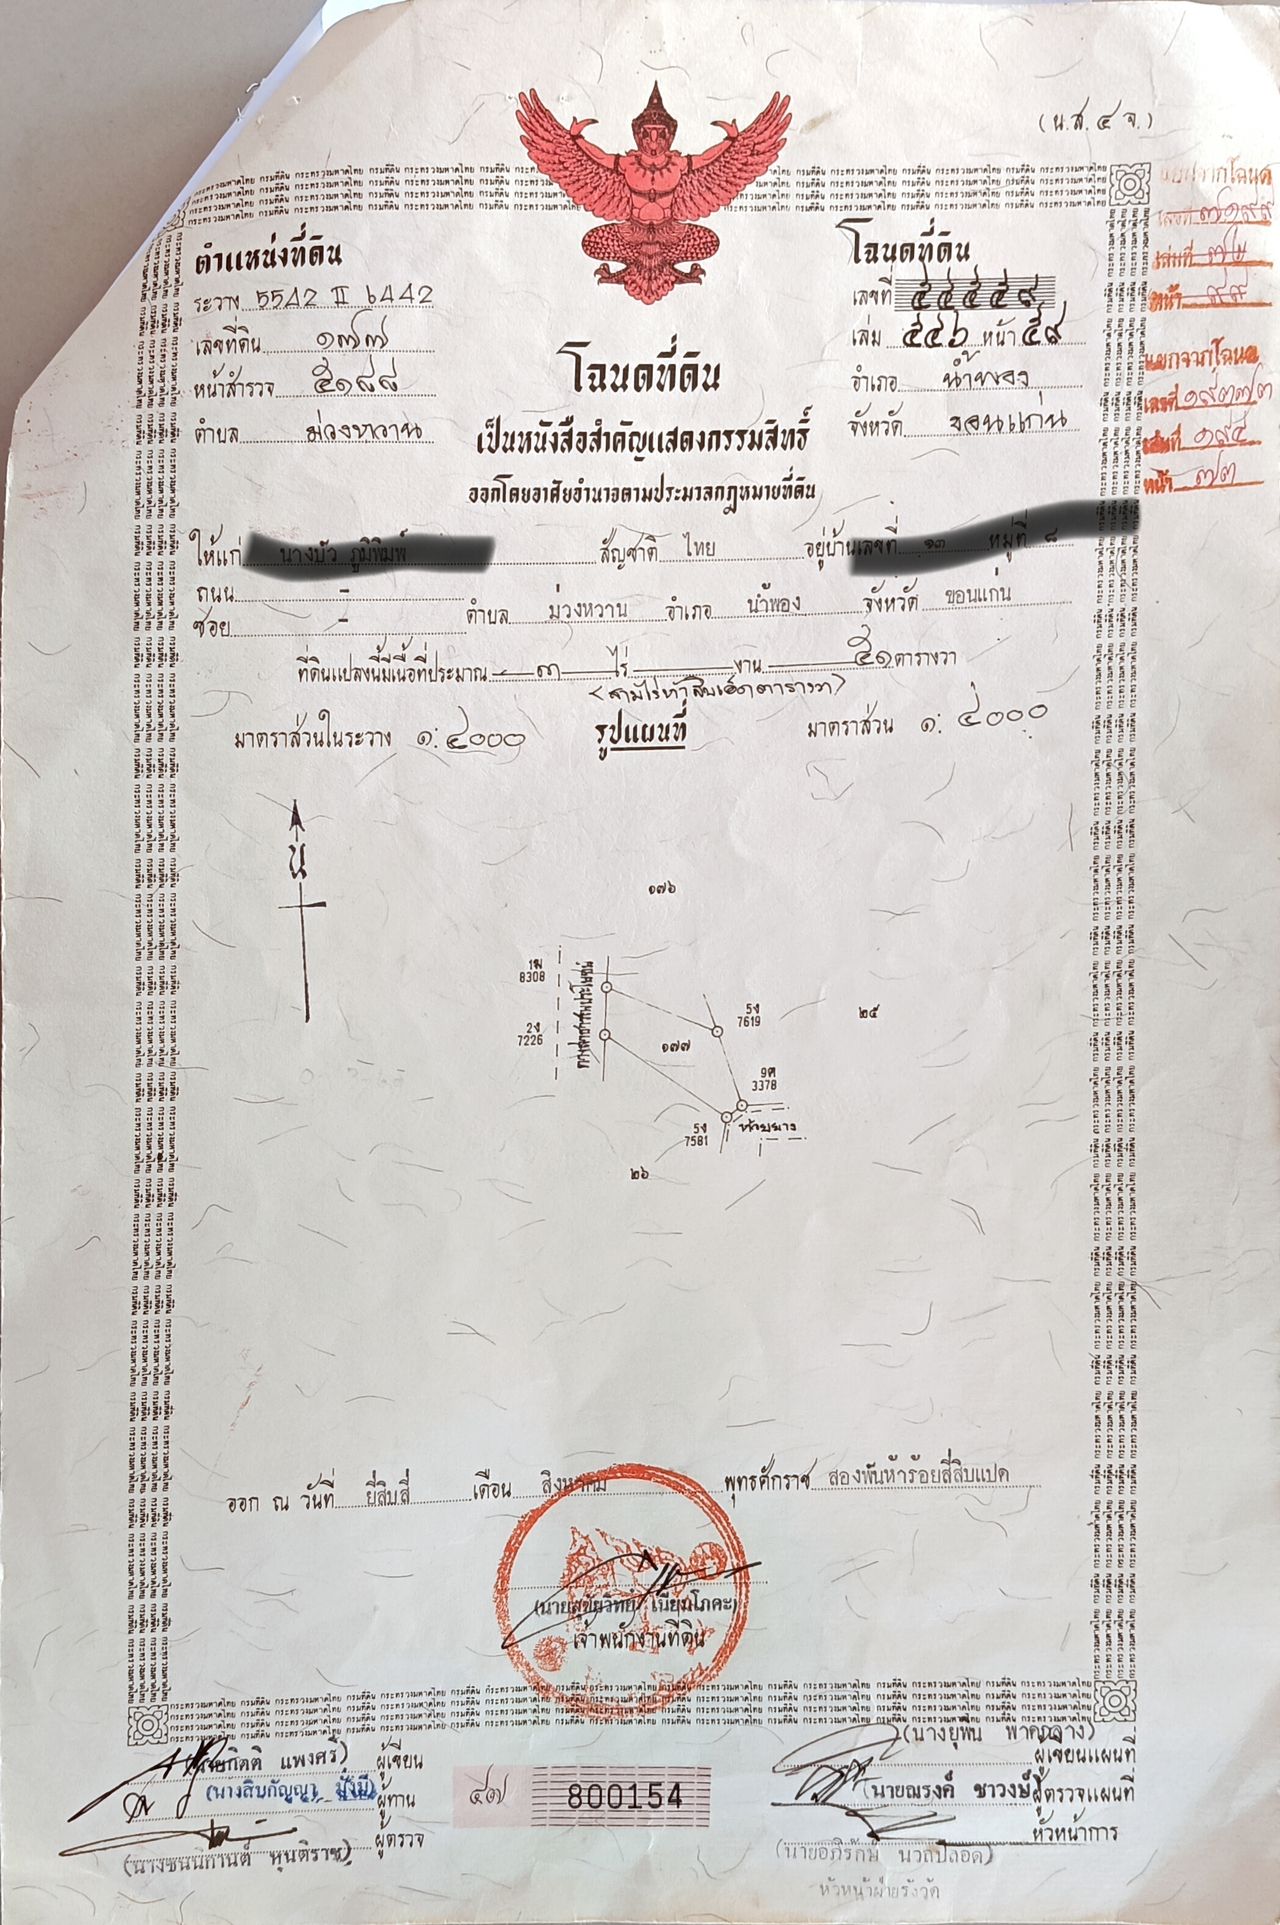 (น.ส.๔ จ.)
ตำแหน่งที่ดิน
ระวาง 5542 II 6442
เลขที่ดิน ๑๗๗
หน้าสำรวจ ๕๑๘๘
ตำบล ม่วงหวาน
โฉนดที่ดิน
เลขที่ ๔๔๔๔๙
เล่ม ๔๔๖ หน้า ๔๙
อำเภอ น้ำพอง
จังหวัด ขอนแก่น
แยกจากโฉนด
เลขที่
เล่มที่
หน้า ๙๙
แยกจากโฉนด
เลขที่ ๑๙๓๗๓
เล่มที่ ๑๙๔
หน้า ๗๓
โฉนดที่ดิน
เป็นหนังสือสำคัญแสดงกรรมสิทธิ์
ออกโดยอาศัยอำนาจตามประมวลกฎหมายที่ดิน
ให้แก่ สัญชาติ ไทย อยู่บ้านเลขที่ หมู่ที่ ๘
ถนน -
ซอย - ตำบล ม่วงหวาน อำเภอ น้ำพอง จังหวัด ขอนแก่น
ที่ดินแปลงนี้มีเนื้อที่ประมาณ ๓ ไร่ งาน ๕๑ ตารางวา
(สามไร่ห้าสิบเอ็ดตารางวา)
มาตราส่วนในระวาง ๑:๔๐๐๐ รูปแผนที่ มาตราส่วน ๑:๔๐๐๐
น
๑๗๖
1ฒ
8308
ทางสาธารณประโยชน์
5ง
7619
๒๕
2ง
7226
๑๗๗
9ศ
3378
5ง
7581
ห้วยยาง
๒๖
ออก ณ วันที่ ยี่สิบสี่ เดือน สิงหาคม พุทธศักราช สองพันห้าร้อยสี่สิบแปด
(นายสุชัยวิทย์ เนียมโภคะ)
เจ้าพนักงานที่ดิน
(นายกิตติ แพงศรี) ผู้เขียน
ผู้ทาน
ผู้ตรวจ
๔๗ 800154
ผู้เขียนแผนที่
(นายณรงค์ ชาวงษ์) ผู้ตรวจแผนที่
หัวหน้าการ
หัวหน้าฝ่ายรังวัด